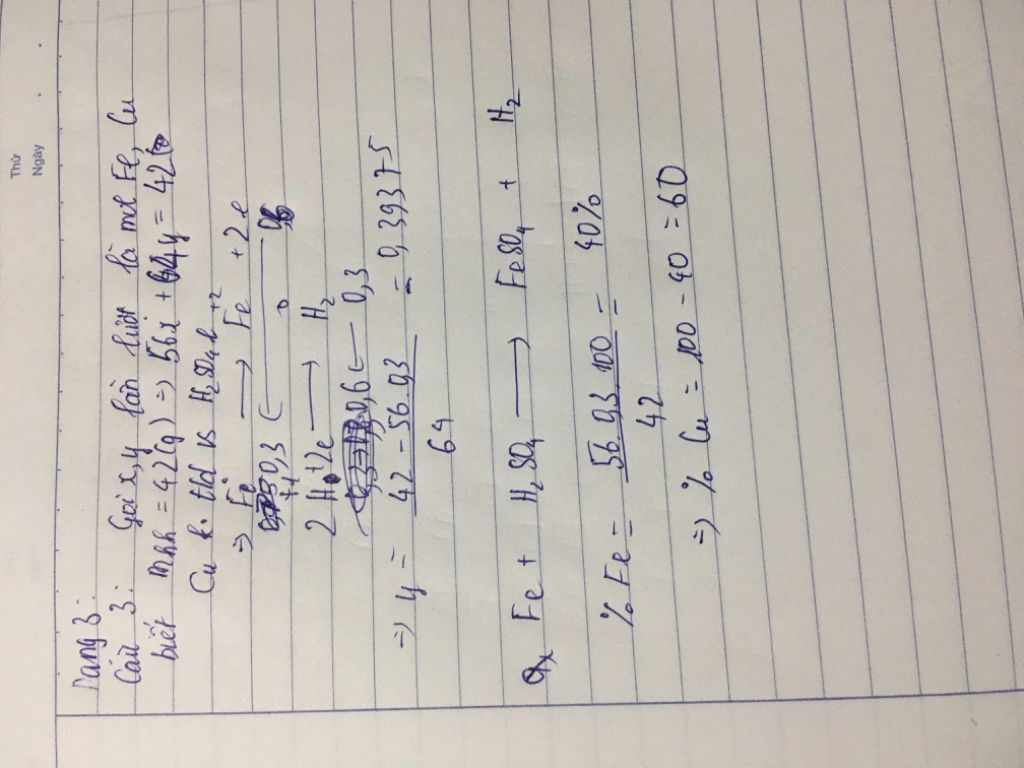 Thứ
Ngày
Dạng 3:
Câu 3: Gọi x, y lần lượt là mol Fe, Cu
biết mhh = 42(g) => 56x + 64y = 42
Cu k. tld vs H2SO4 l
=> Fe° ⟶ Fe+2 + 2e
0,3 ⟵ 0,6
2H+1 + 2e ⟶ H2
0,6 ⟵ 0,3
=> y = (42 - 56.0,3)/64 = 0,39375
a, Fe + H2SO4 ⟶ FeSO4 + H2
% Fe = (56.0,3.100)/42 = 40%
=> % Cu = 100 - 40 = 60